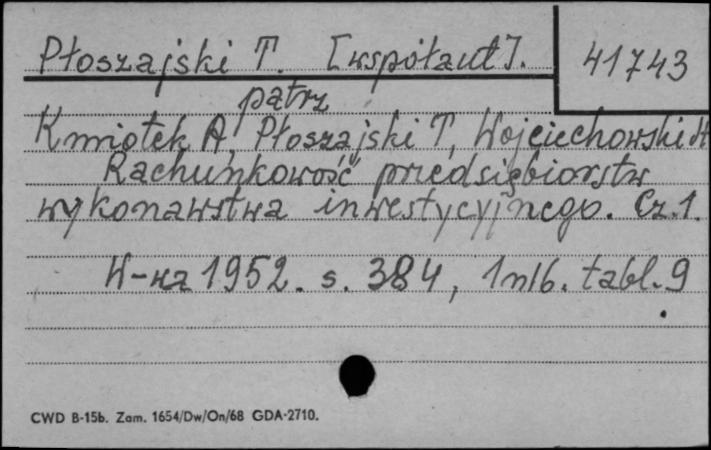 Płoszajski T. [współaut].
41743
patrz
Kmiotek A, Płoszajski T, Wojciechowski St
Rachunkowość przedsiębiorstw
wykonawstwa inwestycyjnego. Cz. 1.
W-wa 1952. s. 384, 1 nlb. tabl. 9
CWD B-15b. Zam. 1654/Dw/On/68 GDA-2710.